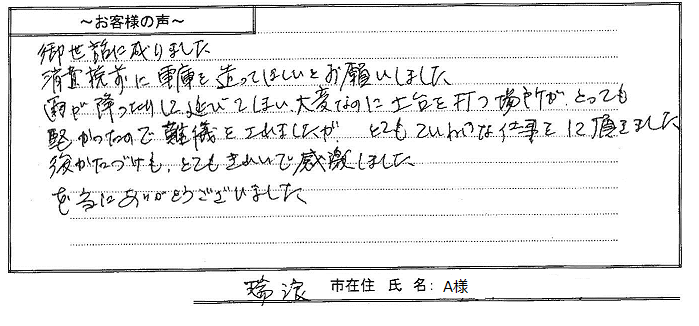 ～お客様の声～
御世話に成りました
消費税前に車庫を造ってほしいとお願いしました
雨が降ったりして延びてしまい大変なのに土台を打つ場所が、とっても
堅かったので難儀をされましたが とてもていねいな仕事をして頂きました
後かたづけも、とてもきれいで感激しました
本当にありがとうございました
瑞浪 市在住 氏 名: A様